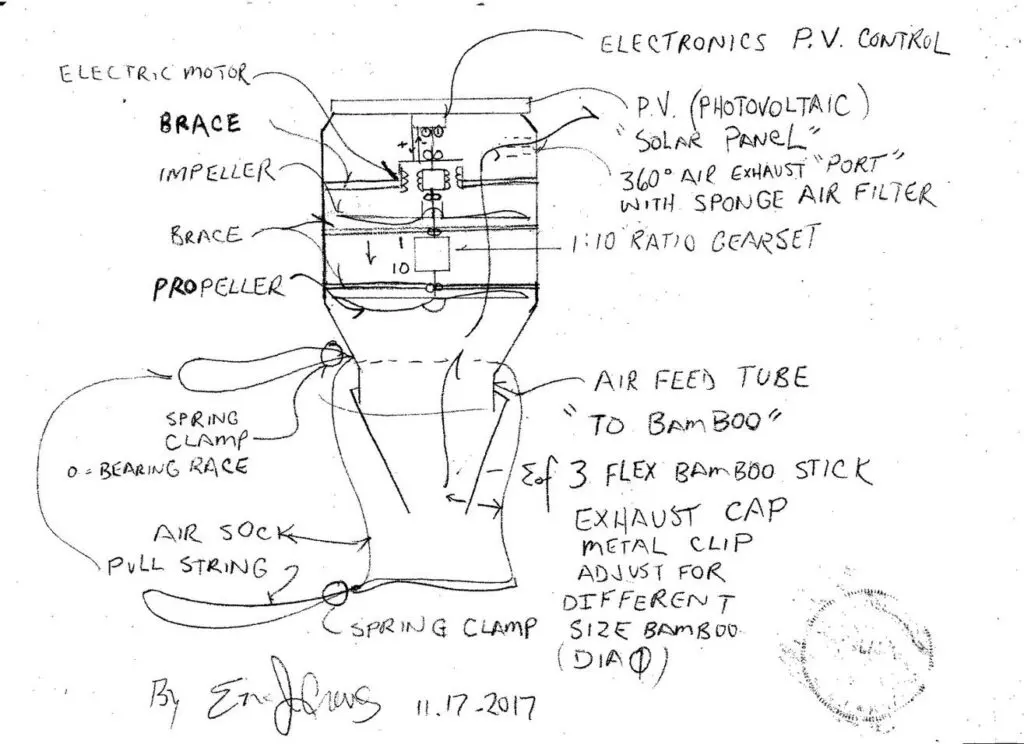 ELECTRONICS P.V. CONTROL
ELECTRIC MOTOR
BRACE
IMPELLER
BRACE
PROPELLER
P.V. (PHOTOVOLTAIC)
"SOLAR PANEL"
360° AIR EXHAUST "PORT"
WITH SPONGE AIR FILTER
1:10 RATIO GEARSET
+
1
10
AIR FEED TUBE
"TO BAMBOO"
SPRING
CLAMP
O = BEARING RACE
Σof 3 FLEX BAMBOO STICK
EXHAUST CAP
METAL CLIP
ADJUST FOR
DIFFERENT
SIZE BAMBOO
(DIA Φ)
AIR SOCK
PULL STRING
SPRING CLAMP
By
11.17-2017